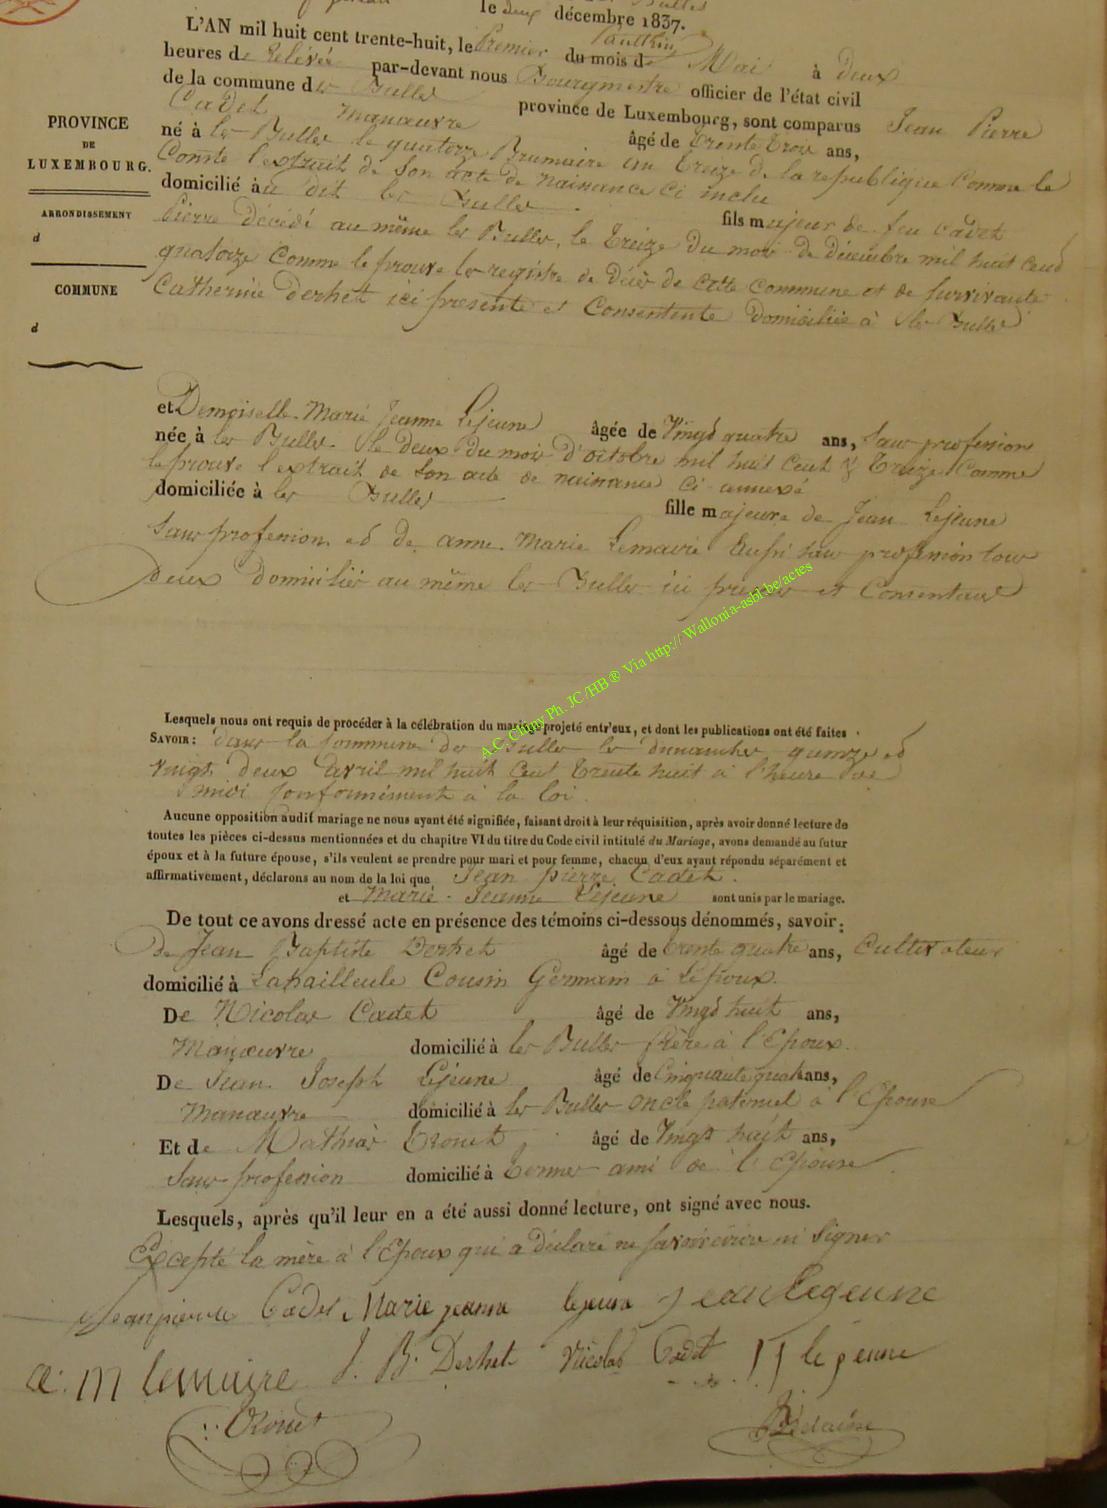 le deux décembre 1837.
L'AN mil huit cent trente-huit, le Premier du mois de Mai à deux
heures de relévée par-devant nous Bourgmestre officier de l'état civil
de la commune des Bulles province de Luxembourg, sont comparus Jean Pierre
Cadet manœuvre âgé de trente trois ans,
né à les Bulles le quatorze Brumaire an treize de la republique comme le
Conste l'extrait de son acte de naissance ci inclu
domicilié au dit les Bulles fils majeur de feu Cadet
Pierre décédé au même les Bulles, le treize du mois de décembre mil huit cent
quatorze comme le prouve les registre de décès de cette commune et de survivante
Catherine Derhet ici presente et Consentente domiciliée à les Bulles
PROVINCE
DE
LUXEMBOURG.
ARRONDISSEMENT
d
COMMUNE
d
et Demoiselle Marie Jeanne Lejeune âgée de Vingt quatre ans, sans profession
née à les Bulles le deux du mois d'octobre mil huit cent treize comme
le prouve l'extrait de son acte de naissance ci annexé
domiciliée à les Bulles fille majeure de Jean Lejeune
sans profession et de anne Marie Lemaire aussi sans profession tous
deux domiciliés au même les Bulles ici présens et Consentans
A.C. Chiny Ph. JC/HB® Via http://Wallonia-asbl.be/actes
Lesquels nous ont requis de procéder à la célébration du mariage projeté entr'eux, et dont les publications ont été faites
SAVOIR: dans la Commune des Bulles les dimanches quinze et
vingt deux avril mil huit cent trente huit à l'heure de
midi conformément à la loi.
Aucune opposition audit mariage ne nous ayant été signifiée, faisant droit à leur réquisition, après avoir donné lecture de
toutes les pièces ci-dessus mentionnées et du chapitre VI du titre du Code civil intitulé du Mariage, avons demandé au futur
époux et à la future épouse, s'ils veulent se prendre pour mari et pour femme, chacun d'eux ayant répondu séparément et
affirmativement, déclarons au nom de la loi que Jean pierre Cadet.
et Marie Jeanne Lejeune sont unis par le mariage.
De tout ce avons dressé acte en présence des témoins ci-dessous dénommés, savoir:
De Jean Baptiste Derhet âgé de trente quatre ans, Cultivateur
domicilié à Lahailleule Cousin Germain à l'époux.
De Nicolas Cadet âgé de Vingt huit ans,
Manœuvre domicilié à les Bulles frère à l'Epoux.
De Jean Joseph Lejeune âgé de Cinquante quatre ans,
Manœuvre domicilié à les Bulles oncle paternel à l'Epouse
Et de Mathias Bronet âgé de Vingt huit ans,
Sans profession domicilié à Termes ami de l'Epouse
Lesquels, après qu'il leur en a été aussi donné lecture, ont signé avec nous.
Excepté la mère à l'Epoux qui a déclaré ne savoir écrire ni signer
Jean pierre Cadet Marie jeanne lejeune jean lejeune
a: m lemaire J. B. Derhet Nicolas Cadet J J le jeune